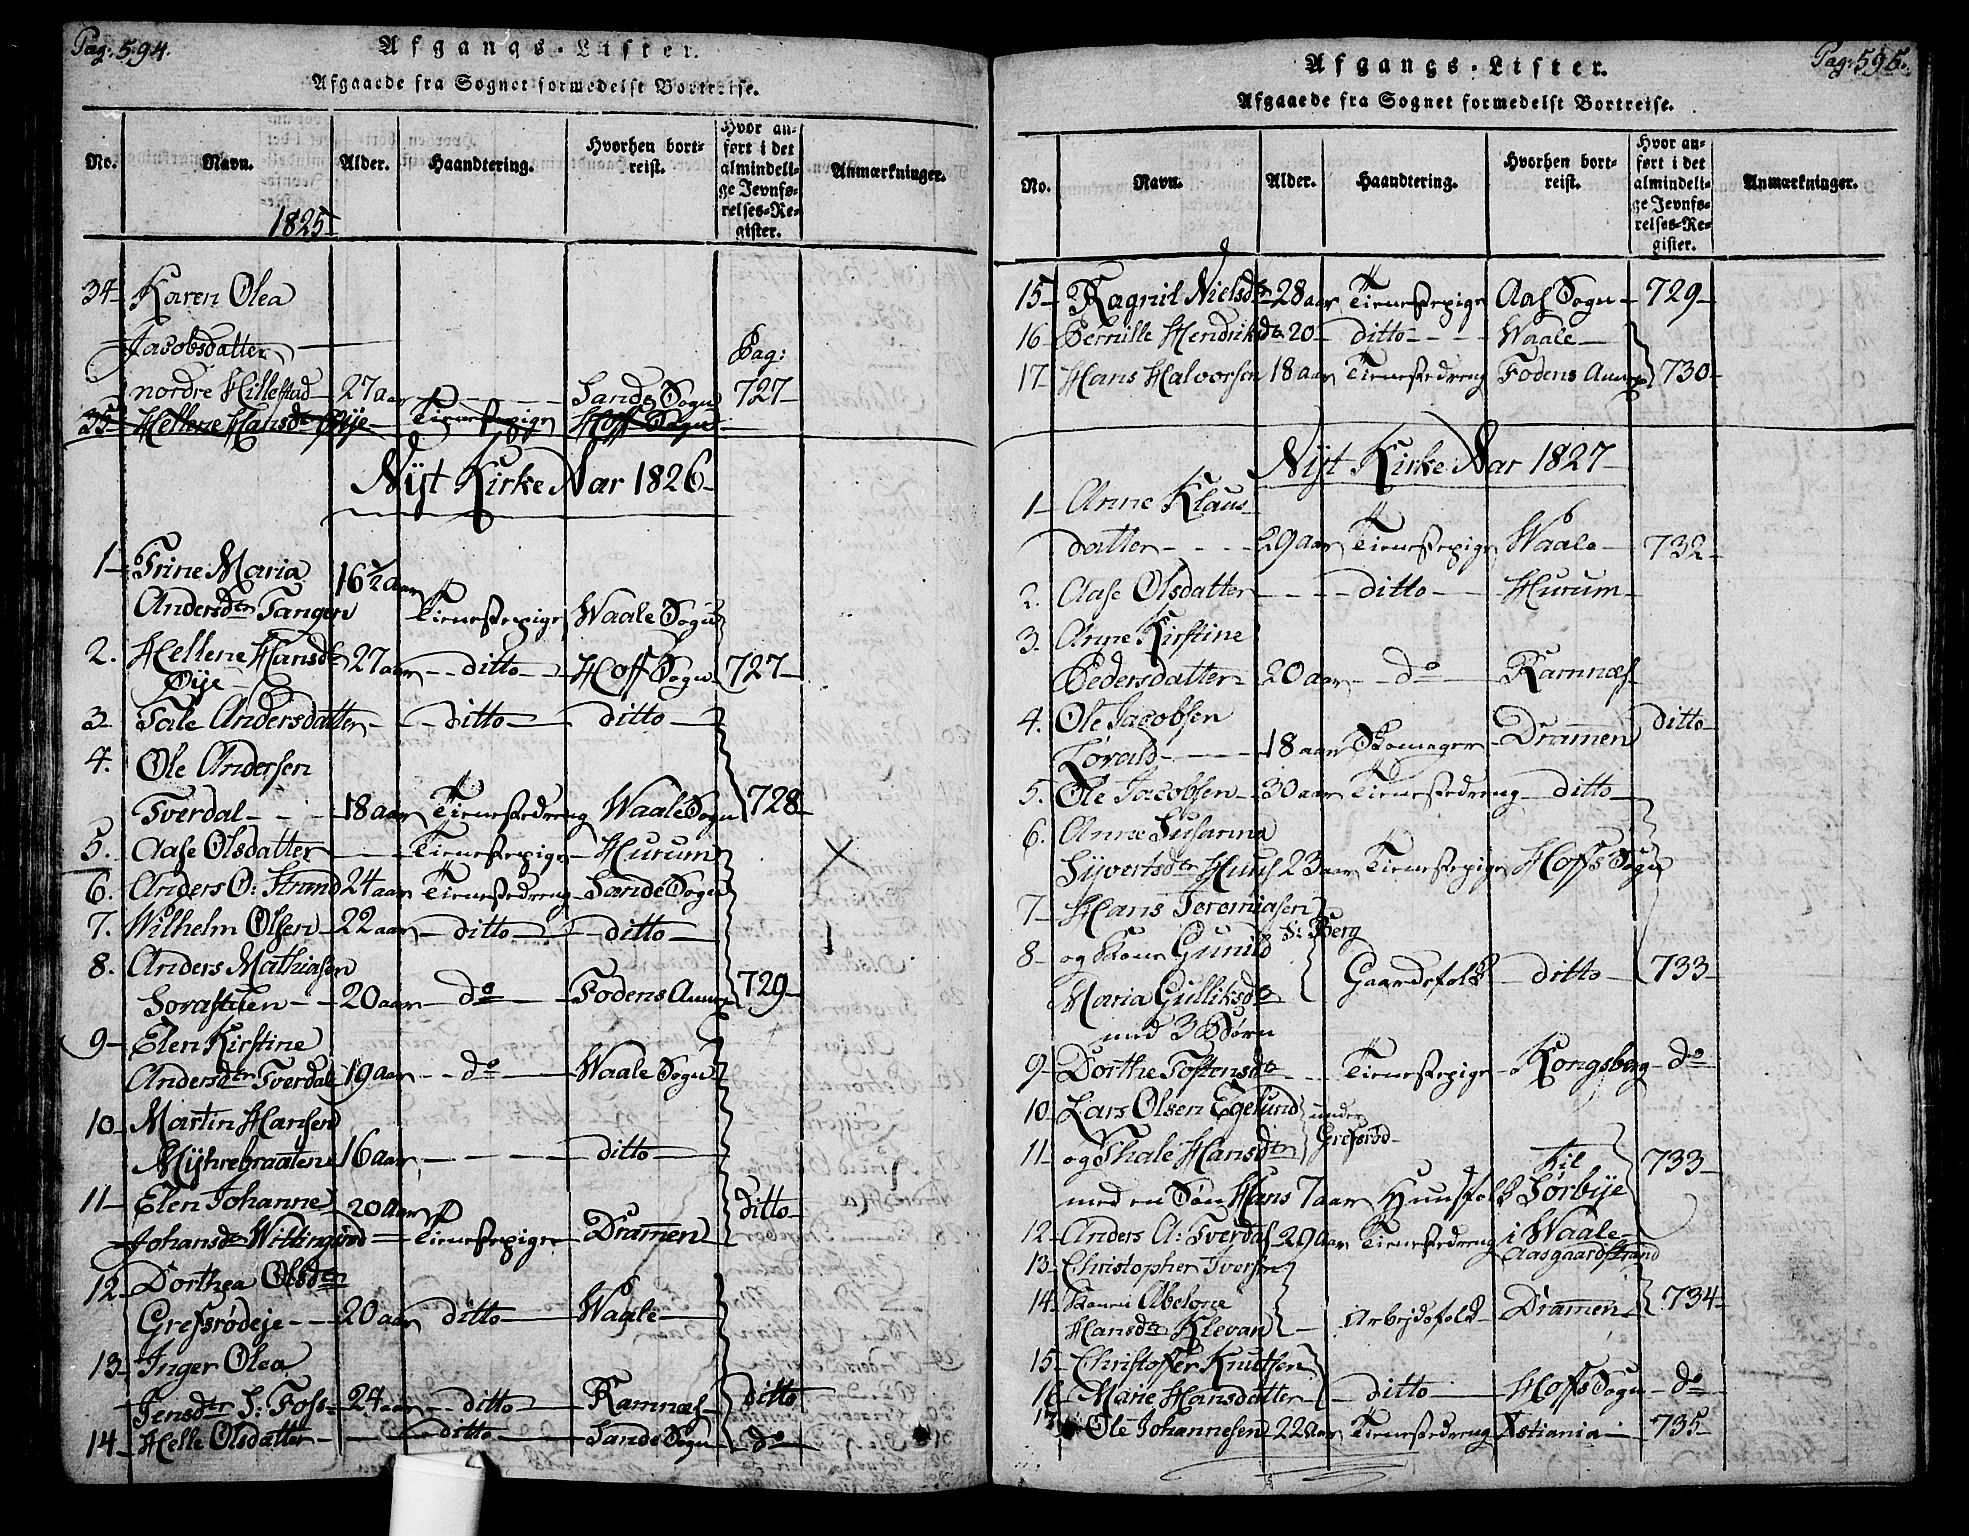 Pag: 594.
Afgangs-Lister.
Afgaaede fra Sognet formedelst Bortreise.
No. Navn. Alder. Haandtering. Hvorhen bortreist. Hvor anført i det almindelige Jevnførelses-Register. Anmærkninger.
1825
34 Karen Olea
Jacobsdatter Pag:
nordre Hillestad 27 aar Sande Sogn 727
35 Hellene Hansdr Øije Tienestepige Hoff Sogn
Nÿt Kirke Aar 1826
1 Trine Maria 16 1/2 aar
Andersdtr Tangen Tienestepige Waale Sogn
2. Hellene Hansdr 27 aar ditto Hoff Sogn 727
Øije
3 Tale Andersdatter ditto ditto
4. Ole Andersen
Tverdal 18 aar Tienestedreng Waale Sogn 728
5. Aase Olsdatter Tienestepige Hurum X
6. Anders O: Strand 24 aar Tienestedreng Sande Sogn
7. Wilhelm Olsen 22 aar ditto ditto
8. Anders Mathiasen
20 aar do Fodens Annex 729
9 Elen Kirstine
Andersdtr Tverdal 19 aar do Waale Sogn
10 Martin Hansen
Mÿhrebraaten 16 aar ditto
11 Elen Johanne 20 aar ditto
Johansdr Tienestepige Dramen
12 Dorthea Olsdtr
Grefsrødeje 20 aar ditto Waale
13 Inger Olea
Jensdtr S: Foss 24 aar ditto Ramnæs ditto
14 Helle Olsdatter ditto Sande Sogn do
Pag: 595.
Afgangs-Lister.
Afgaaede fra Sognet formedelst Bortreise.
No. Navn. Alder. Haandtering. Hvorhen bortreist. Hvor anført i det almindelige Jevnførelses-Register. Anmærkninger.
15 Ragnil Nielsdr 28 aar Tienestepige Aas Sogn 729
16 Pernille Hendriksdr 20 ditto Waale
17 Hans Halvorsen 18 aar Tienestedreng Fodens Annex 730
Nÿt Kirke Aar 1827
1 Anne Klaus
datter 29 aar Tienestepige Waale 732
2. Aase Olsdatter ditto Hurum
3. Anne Kirstine
Pedersdatter 20 aar do Ramnæs
4. Ole Jacobsen
18 aar Skomager Dramen ditto
5. Ole Jacobsen 30 aar Tienestedreng ditto
6. Anne Susanna
Syvertsdr Huus 23 aar Tienestepige Hoffs Sogn
7 Hans Jeremiasen
8 og Kone Gunild S: Berg
Maria Gulliksdr Gaardsfolk ditto 733
med 3 Børn
9 Dorthe Tostensdr Tienestepige Kongsberg do
10 Lars Olsen Egelund under
11 og Thale Hansdtr Grefsrød til 733
med en Søn Hans 7 aar Huusfolk Sørbÿe
12 Anders A: Tverdal 29 aar Tienestedreng i Waale
13 Christopher Iversen Aasgaardstrand
14 Kone Abelone
Hansdtr Klevan Arbejdsfolk Dramen 734
15 Christoffer Knutsen
16 Marie Hansdatter ditto Hoffs Sogn do
17 Ole Johannesen 22 aar Tienestedreng Xstiania 735